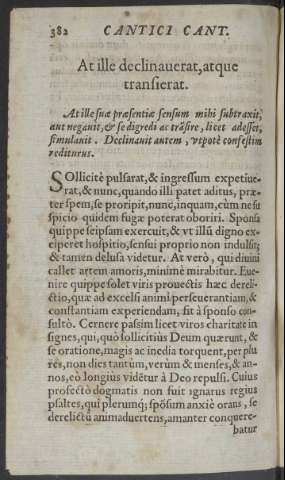 382 CANTICI CANT.
At ille declinauerat, atque
transierat.
At ille suæ præsentiæ sensum mihi subtraxit,
aut negauit, & se digredi ac trãsire, licet adesset,
simulauit. Declinauit autem, vtpotè confestim
rediturus.
SOllicitè pulsarat, & ingressum expetiue-
rat, & nunc, quando illi patet aditus, præ-
ter spem, se proripit, nunc, inquam, cùm ne su
spicio quidem fugæ poterat oboriri. Sponsa
quippe seipsam exercuit, & vt illũ digno ex-
ciperet hospitio, sensui proprio non indulsit;
& tamen delusa videtur. At verò, qui diuini
callet artem amoris, minimè mirabitur. Eue-
nire quippe solet viris prouectis hæc dereli-
ctio, quæ ad excelsi animi perseuerantiam, &
constantiam experiendam, fit à sponso con-
sultò. Cernere passim licet viros charitate in
signes, qui, quò sollicitiùs Deum quærunt, &
se oratione, magis ac inedia torquent, per plu
res, non dies tantùm, verùm & menses, & an-
nos, eò longiùs vidẽtur à Deo repulsi. Cuius
profectò dogmatis non fuit ignarus regius
psaltes, qui plerumq; spõsum anxiè orans, se
derelictũ animaduertens, amanter conquere-
batur